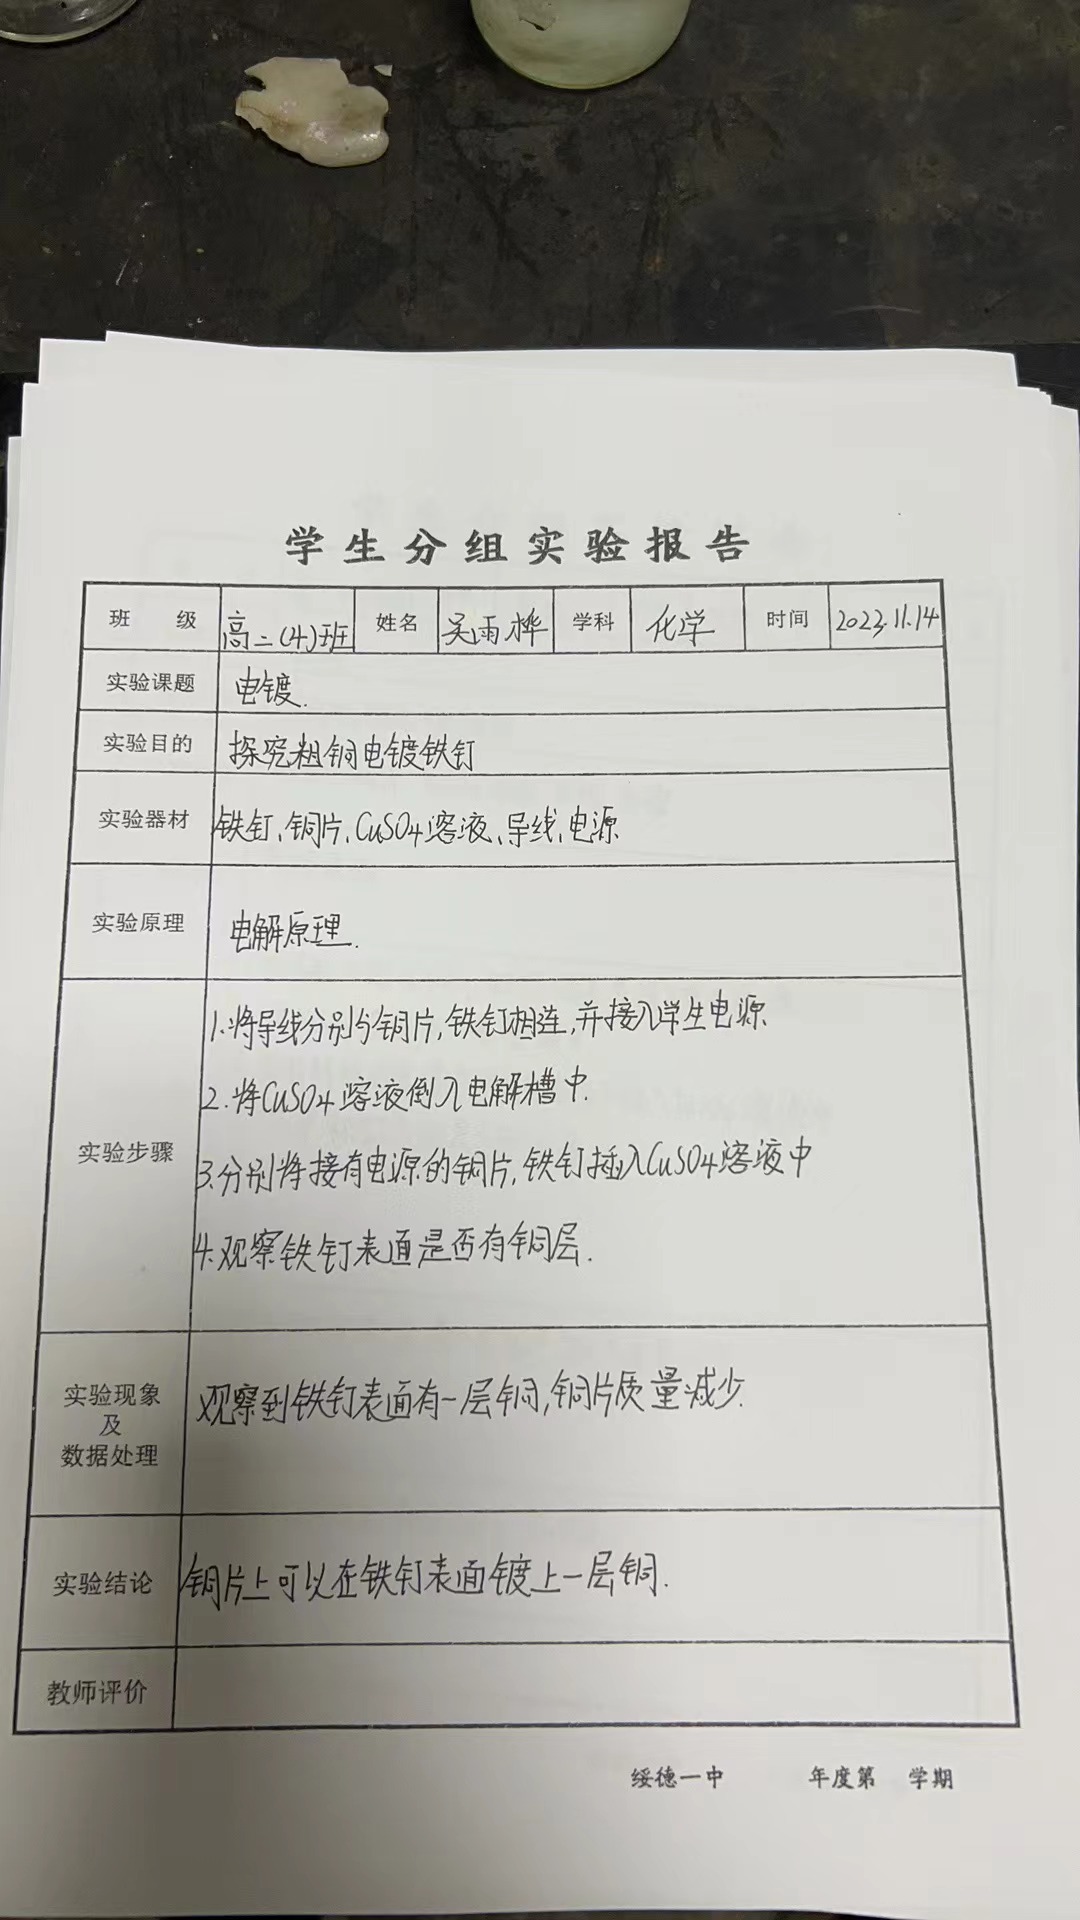 学生分组实验报告
班 级 高二(4)班 姓名 吴雨桦 学科 化学 时间 2023.11.14
实验课题 电镀.
实验目的 探究粗铜电镀铁钉
实验器材 铁钉、铜片、CuSO4溶液、导线、电源
实验原理 电解原理.
实验步骤
1.将导线分别与铜片,铁钉相连,并接入学生电源
2.将CuSO4溶液倒入电解槽中.
3.分别将接有电源的铜片,铁钉插入CuSO4溶液中
4.观察铁钉表面是否有铜层.
实验现象
及
数据处理
观察到铁钉表面有一层铜,铜片质量减少.
实验结论 铜片上可以在铁钉表面镀上一层铜.
教师评价
绥德一中 年度第 学期